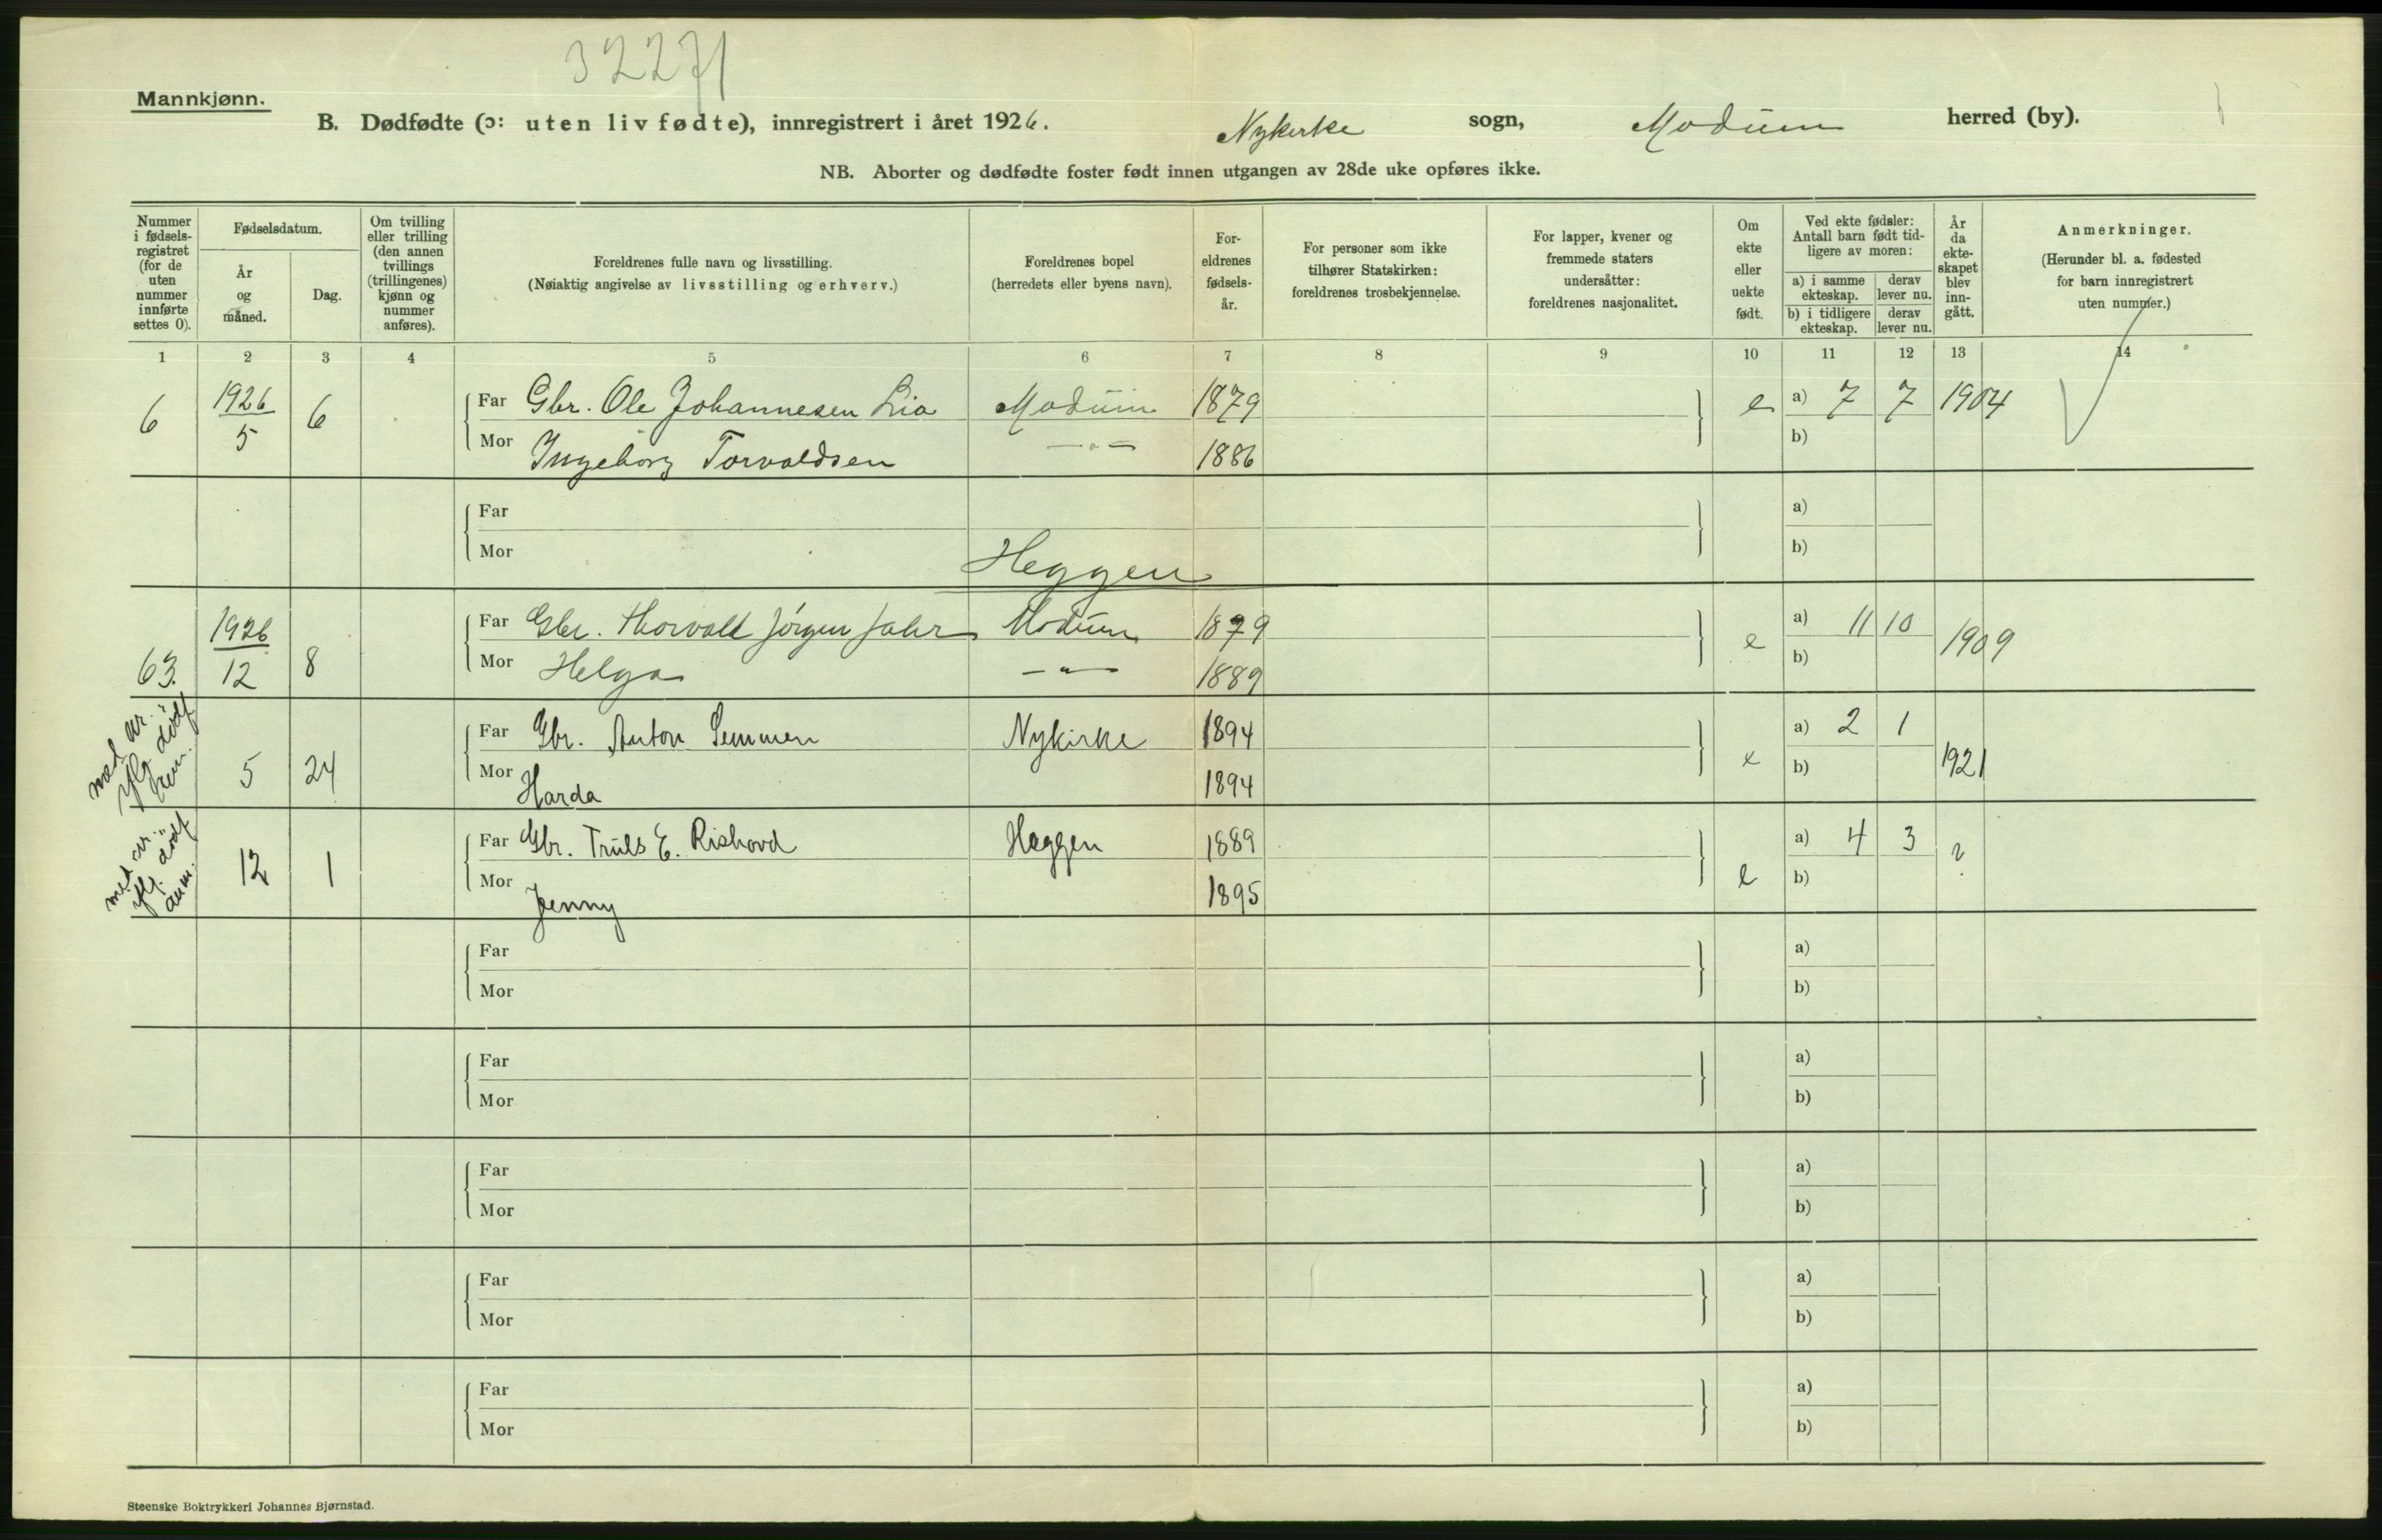 32271
Mannkjønn.
B. Dødfødte (ɔ: uten liv fødte), innregistrert i året 1926. Nykirke sogn, Modum herred (by).
NB. Aborter og dødfødte foster født innen utgangen av 28de uke opføres ikke.
Nummer i fødsels-registret (for de uten nummer innførte settes 0).
Fødselsdatum.
År og måned.
Dag.
Om tvilling eller trilling (den annen tvillings (trillingenes) kjønn og nummer anføres).
Foreldrenes fulle navn og livsstilling.
(Nøiaktig angivelse av livsstilling og erhverv.)
Foreldrenes bopel
(herredets eller byens navn).
For-eldrenes fødsels-år.
For personer som ikke tilhører Statskirken: foreldrenes trosbekjennelse.
For lapper, kvener og fremmede staters undersåtter: foreldrenes nasjonalitet.
Om ekte eller uekte født.
Ved ekte fødsler: Antall barn født tid-ligere av moren:
a) i samme ekteskap.
derav lever nu.
b) i tidligere ekteskap.
derav lever nu.
År da ekte-skapet blev inn-gått.
Anmerkninger.
(Herunder bl. a. fødested for barn innregistrert uten nummer.)
1 2 3 4 5 6 7 8 9 10 11 12 13 14
6 1926 5 6 Far Gbr. Ole Johannesen Lia Modum 1879 e a) 7 7 1904
Mor Ingeborg Torvaldsen —"— 1886 b)
Far a)
Mor b)
Heggen
63. 1926 12 8 Far Gbr. Thorvald Jörgen Jahr Modum 1879 e a) 11 10 1909
Mor Helga —"— 1889 b)
med nr. iflg. dödf
5 24 Far Gbr. Anton Semmen Nykirke 1894 e a) 2 1 1921
Mor Harda 1894 b)
med nr. iflg. dödf anm.
12 1 Far Gbr. Truls E. Rishovd Heggen 1889 e a) 4 3 ?
Mor Jenny 1895 b)
Far a)
Mor b)
Far a)
Mor b)
Far a)
Mor b)
Far a)
Mor b)
Far a)
Mor b)
Steenske Boktrykkeri Johannes Bjørnstad.